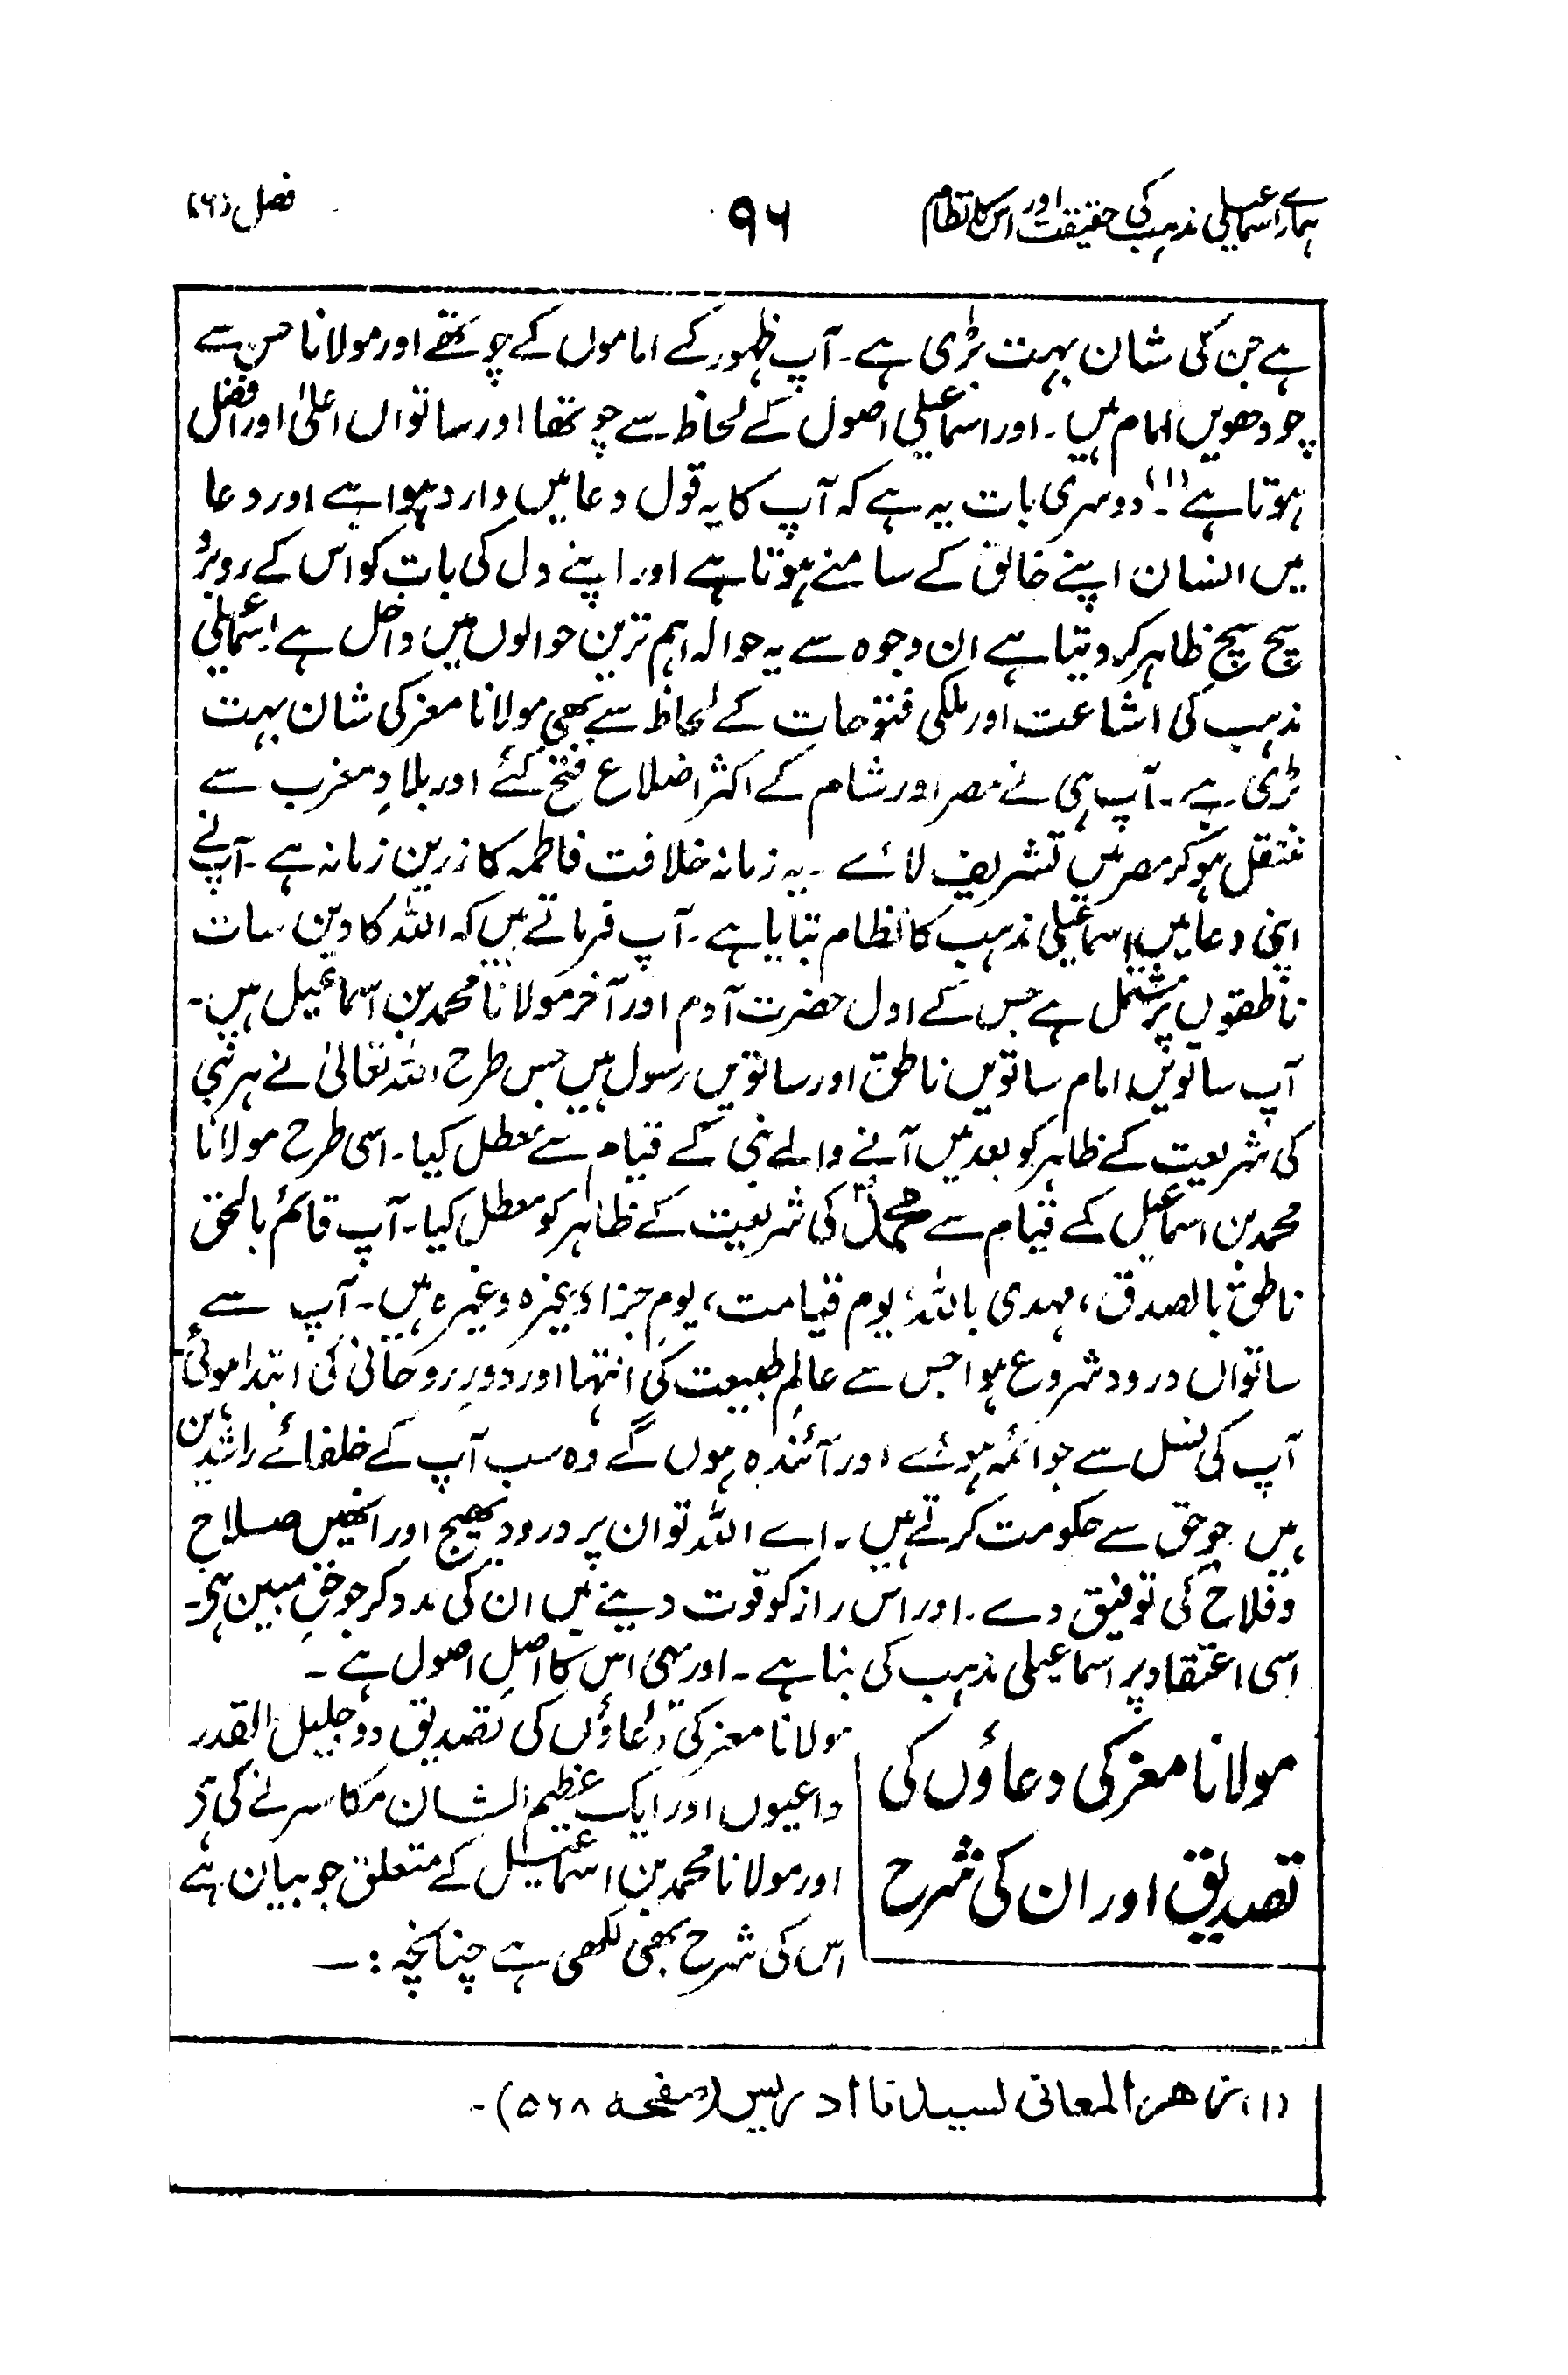 ہمارے اسماعیلی مذہب کی حقیقت اور اس کا نظام
۹۶
فصل (۶)
ہے جن کی شان بہت بڑی ہے۔ آپ ظہور کے اماموں کے چوتھے اور مولانا حسن سے
چودھویں امام ہیں۔ اور اسماعیلی اصول کے لحاظ سے چوتھا اور ساتواں اعلیٰ اور افضل
ہوتا ہے (۱)۔ دوسری بات یہ ہے کہ آپ کا یہ قول دعا میں وارد ہوا ہے اور دعا
میں انسان اپنے خالق کے سامنے ہوتا ہے اور اپنے دل کی بات کو اس کے روبرو
سچ سچ ظاہر کر دیتا ہے ان وجوہ سے یہ حوالہ اہم ترین حوالوں میں داخل ہے اسماعیلی
مذہب کی اشاعت اور ملکی فتوحات کے لحاظ سے بھی مولانا معز کی شان بہت
بڑی ہے۔ آپ ہی نے مصر اور شام کے اکثر اضلاع فتح کئے اور بلادِ مغرب سے
منتقل ہو کر مصر میں تشریف لائے۔ یہ زمانہ خلافت فاطمہ کا زرین زمانہ ہے۔ آپ نے
اپنی دعا میں اسماعیلی مذہب کا نظام بتایا ہے۔ آپ فرماتے ہیں کہ اللہ کا دین سات
ناطقوں پر مشتمل ہے جس کے اول حضرت آدم اور آخر مولانا محمد بن اسماعیل ہیں۔
آپ ساتویں امام ساتویں ناطق اور ساتویں رسول ہیں جس طرح اللہ تعالیٰ نے ہر نبی
کی شریعت کے ظاہر کو بعد میں آنے والے نبی کے قیام سے معطل کیا۔ اسی طرح مولانا
محمد بن اسماعیل کے قیام سے محمدؐ کی شریعت کے ظاہر کو معطل کیا۔ آپ قائم بالحق
ناطق بالصدق، مہدی باللہ، یوم قیامت، یومِ جزا وغیرہ وغیرہ ہیں۔ آپ سے
ساتواں درود شروع ہوا جس سے عالمِ طبیعت کی انتہا اور دورِ روحانی کی ابتدا ہوئی۔
آپ کی نسل سے جو ائمہ ہوئے اور آئندہ ہوں گے وہ سب آپ کے خلفائے راشدین
ہیں جو حق سے حکومت کرتے ہیں۔ اے اللہ تو ان پر درود بھیج اور انھیں صلاح
وفلاح کی توفیق دے۔ اور اس راز کو قوت دینے میں ان کی مدد کر جو حقِ مبین ہے۔
اسی اعتقاد پر اسماعیلی مذہب کی بنا ہے۔ اور یہی اس کا اصلِ اصول ہے۔
مولانا معز کی دعاؤں کی
تصدیق اور ان کی شرح
مولانا معز کی دعاؤں کی تصدیق دو جلیل القدر
داعیوں اور ایک عظیم الشان مکاسر نے کی ہے
اور مولانا محمد بن اسماعیل کے متعلق جو بیان ہے
اس کی شرح بھی لکھی ہے چنانچہ :۔
(۱) زھر المعانی لسیدنا ادریس (صفحہ ۵۶۸)۔